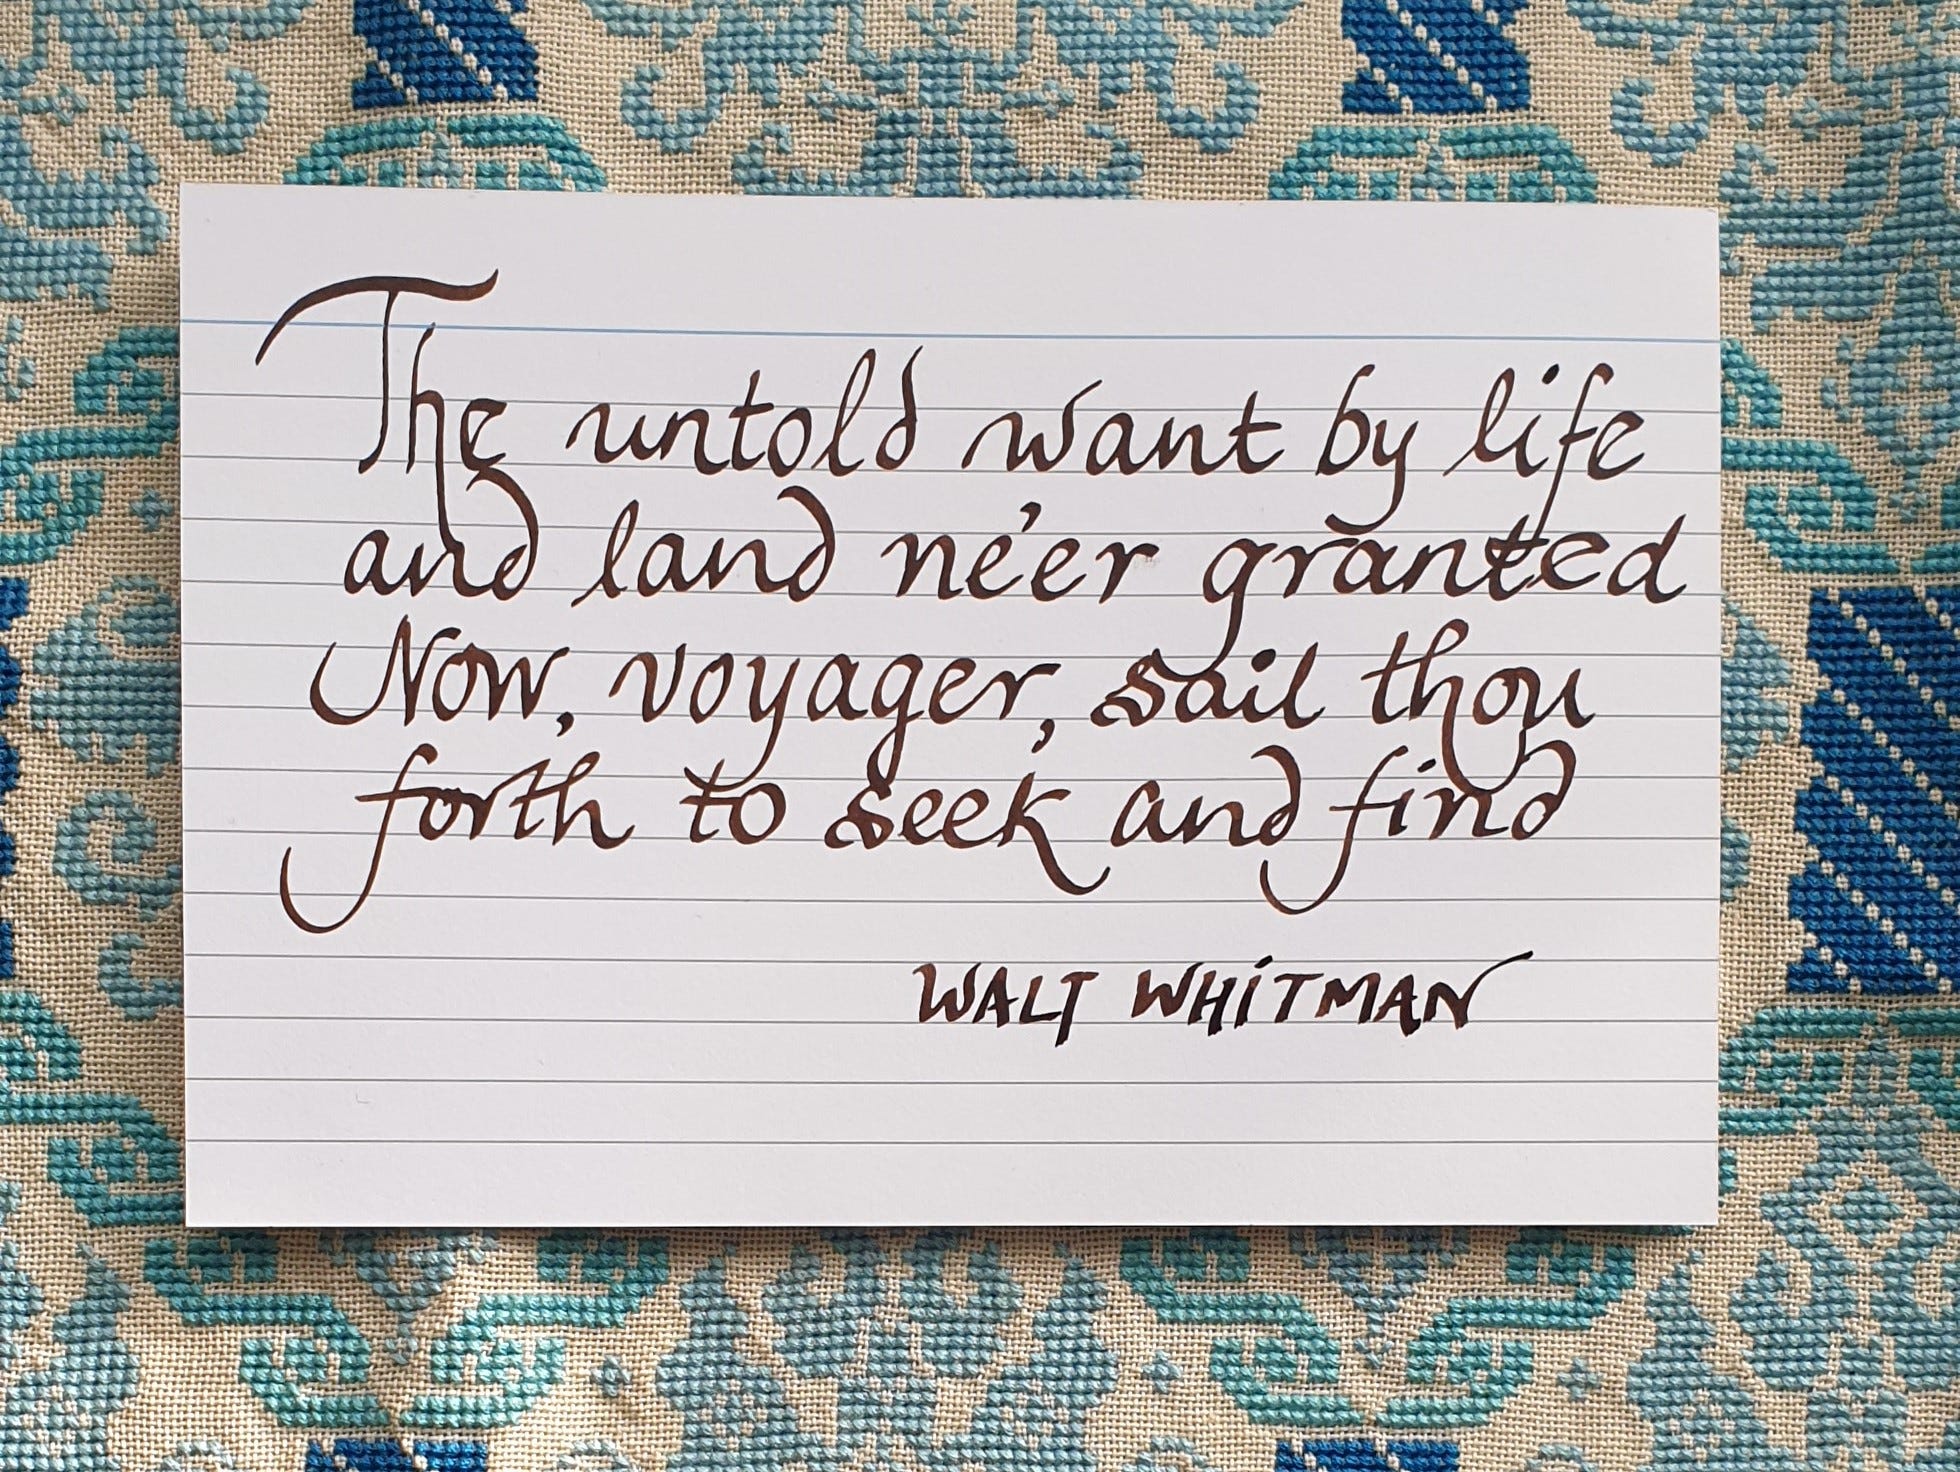 The untold want by life
and land ne'er granted
Now, voyager, sail thou
forth to seek and find
WALT WHITMAN